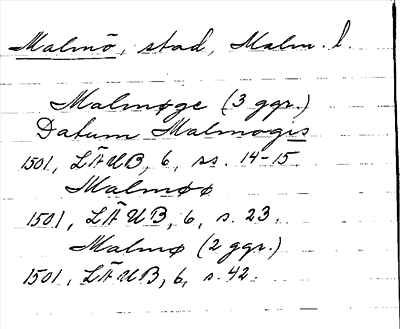 Malmö, stad, Malm. l.
Malmøge (3 ggr.)
Datum Malmogis
1501, LÄUB, 6, ss. 14-15.
Malmøø
1501, LÄUB, 6, s. 23.
Malmø (2 ggr.)
1501, LÄUB, 6, s. 42.